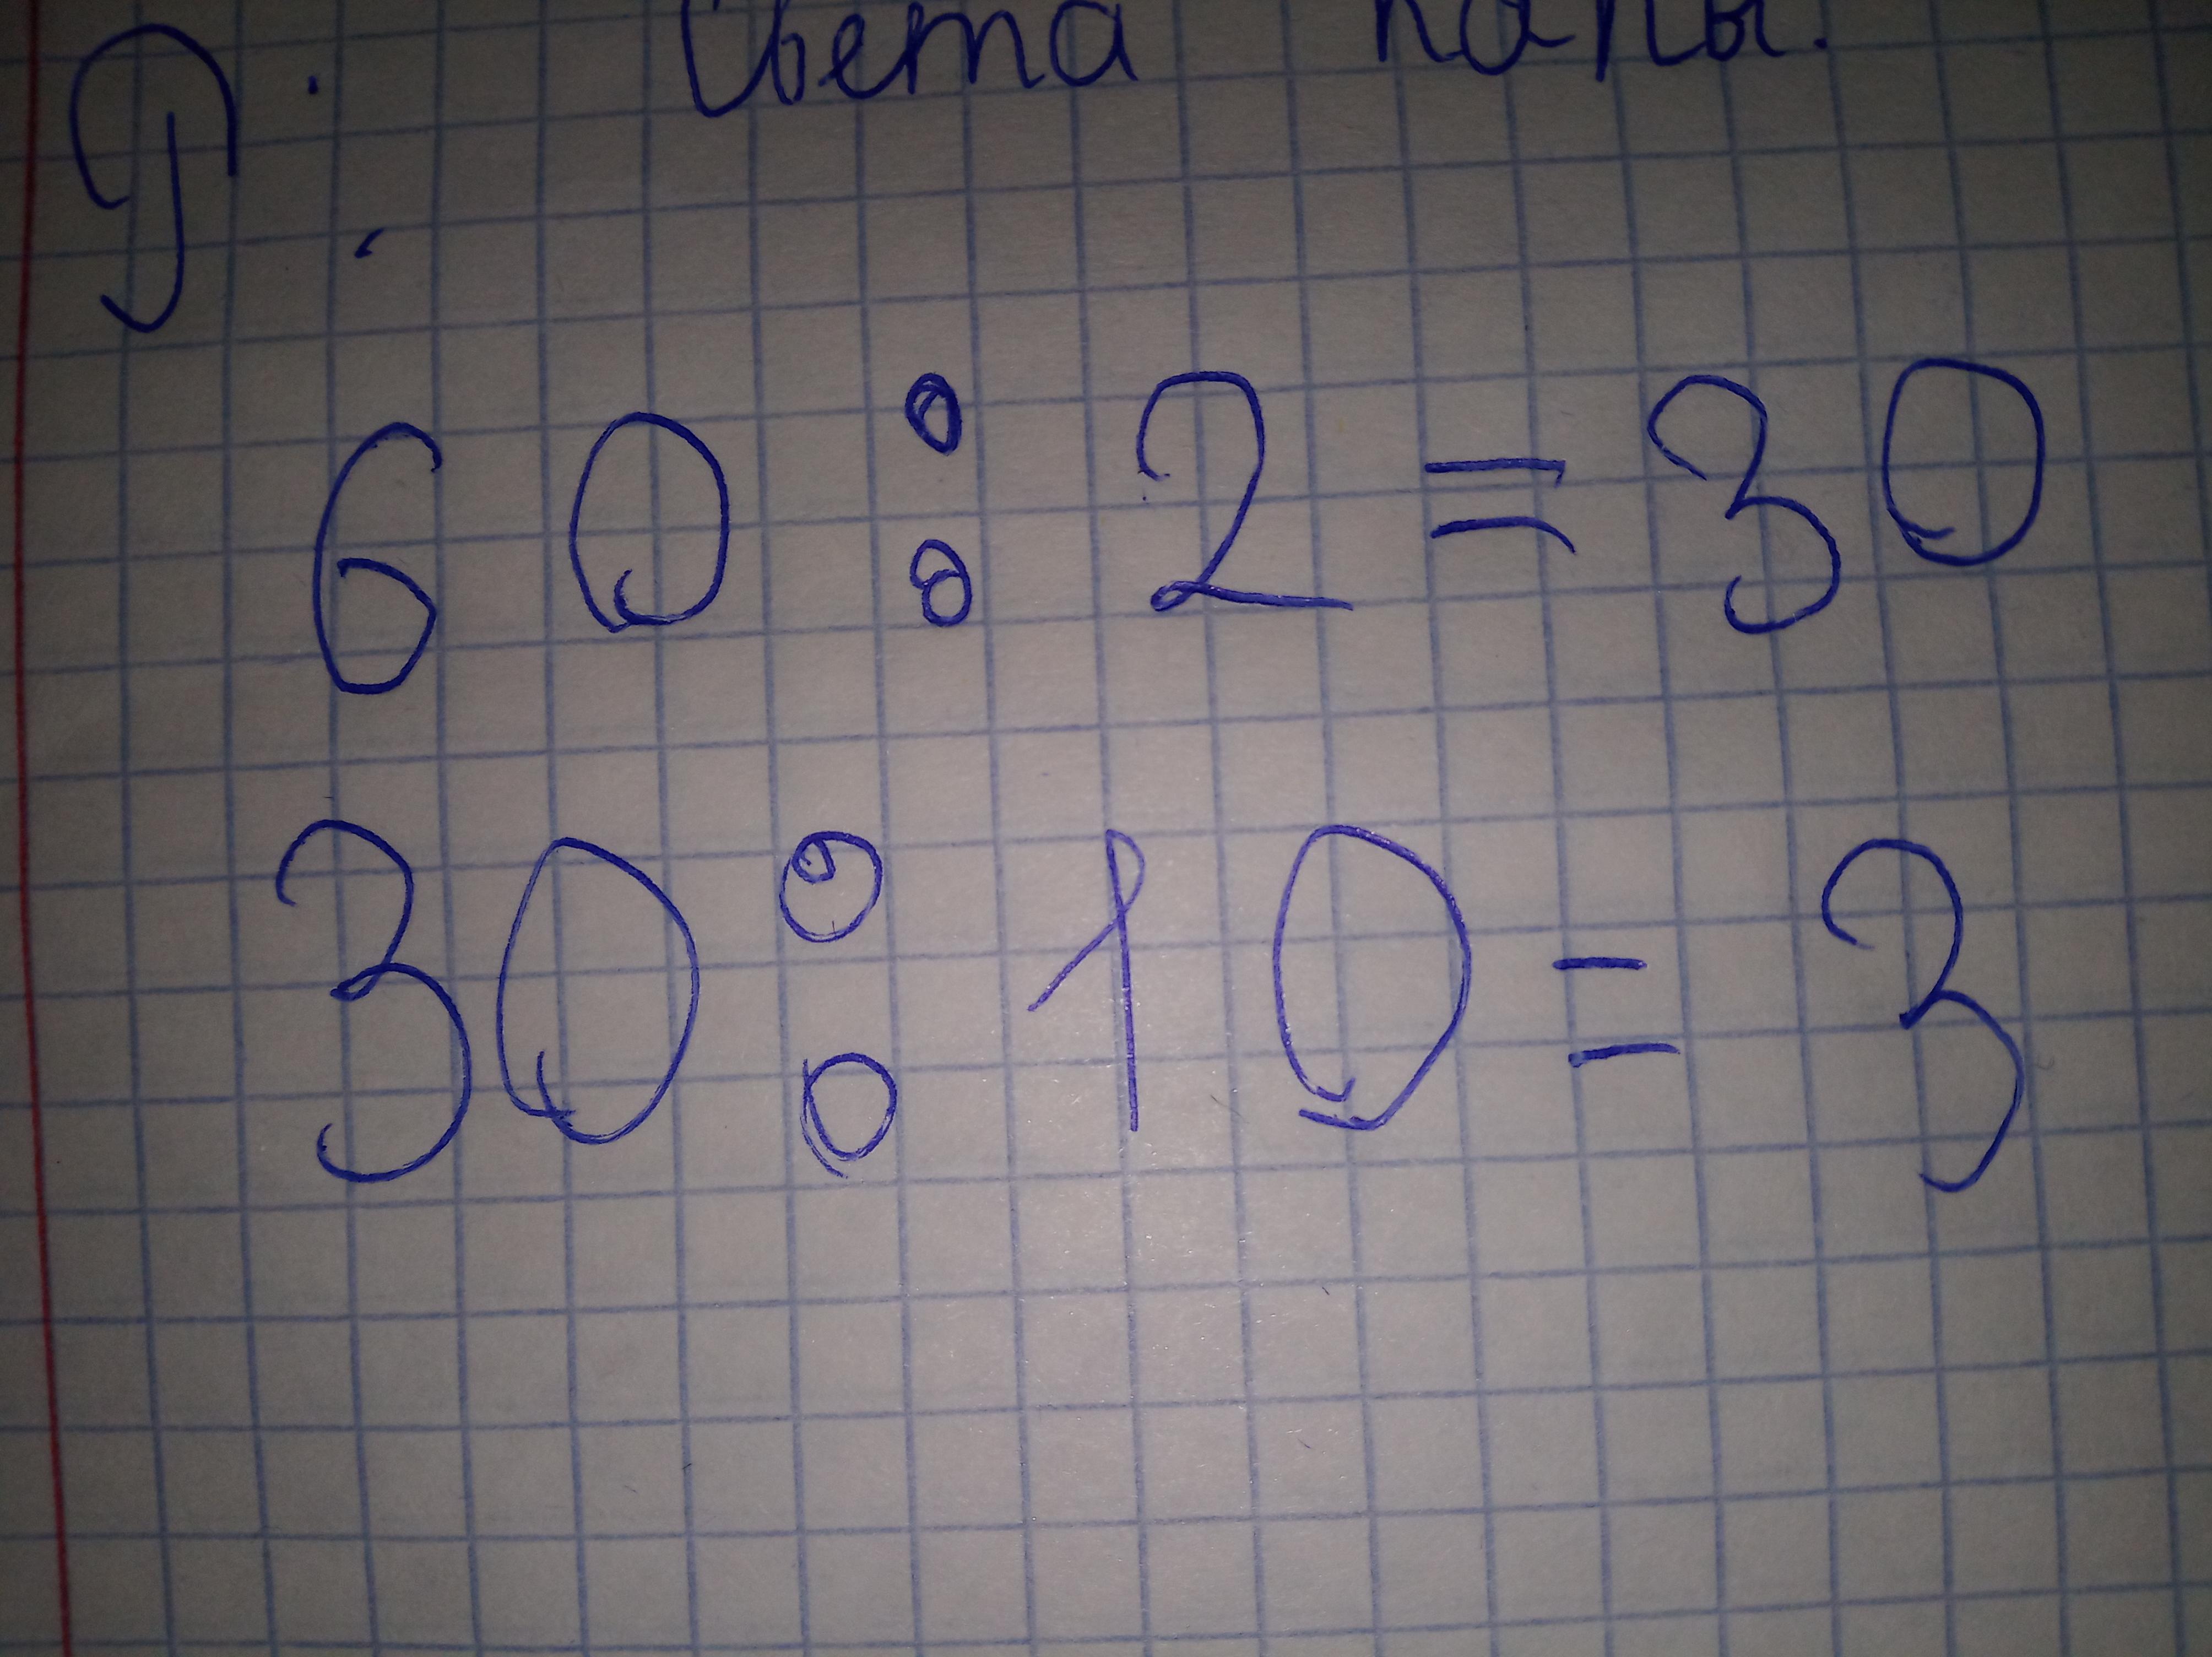 Света папы.
Р:
60:2=30
30:10=3